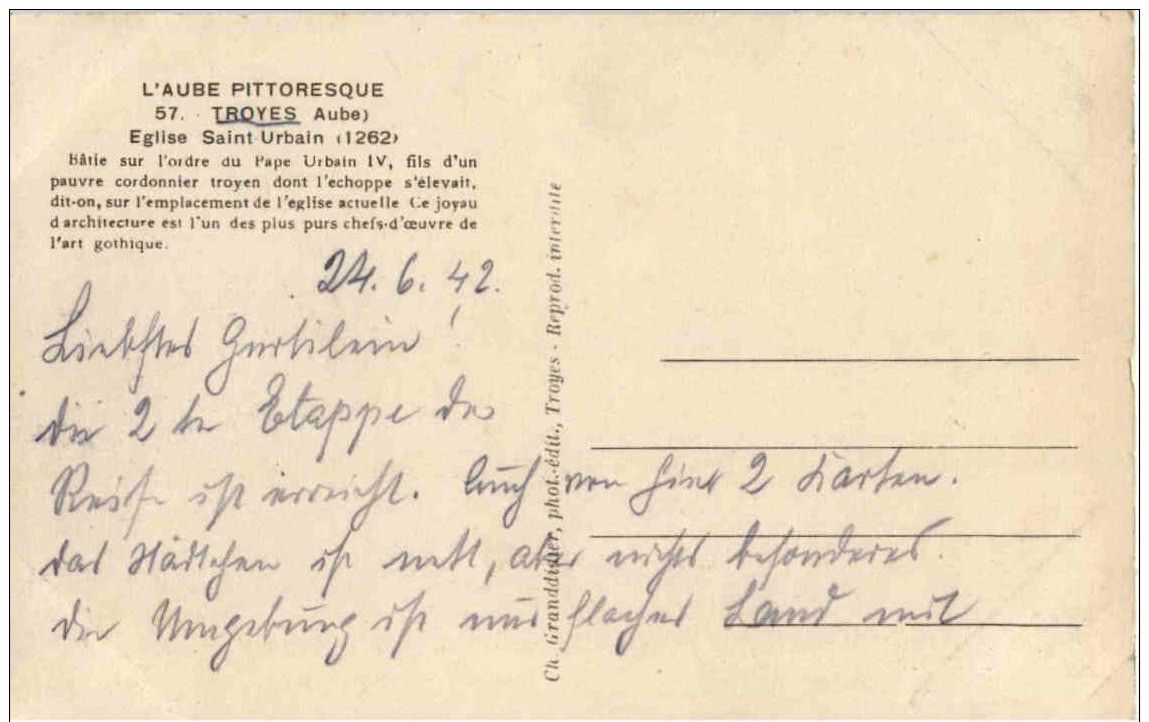 L'AUBE PITTORESQUE
57. · TROYES Aube)
Eglise Saint Urbain (1262)
Bâtie sur l'ordre du Pape Urbain IV, fils d'un
pauvre cordonnier troyen dont l'echoppe s'élevait,
dit-on, sur l'emplacement de l'eglise actuelle Ce joyau
d architecture est l'un des plus purs chefs-d'œuvre de
l'art gothique.
24. 6. 42.
Liebstes Gertilein!
die 2te Etappe der
Reise ist erreicht. Auch von hier 2 Karten.
das Städtchen ist nett, aber nichts besonderes.
die Umgebung ist nur flaches Land mit
Ch. Granddidier, phot.-édit., Troyes - Reprod. interdite